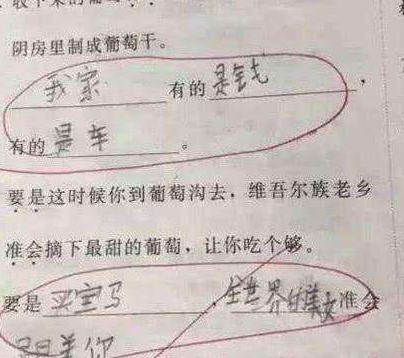 收下来的葡
阴房里制成葡萄干。
我家有的是钱，
有的是车。
要是这时候你到葡萄沟去，维吾尔族老乡
准会摘下最甜的葡萄，让你吃个够。
要是买宝马，全世界的美女准会
跟着你